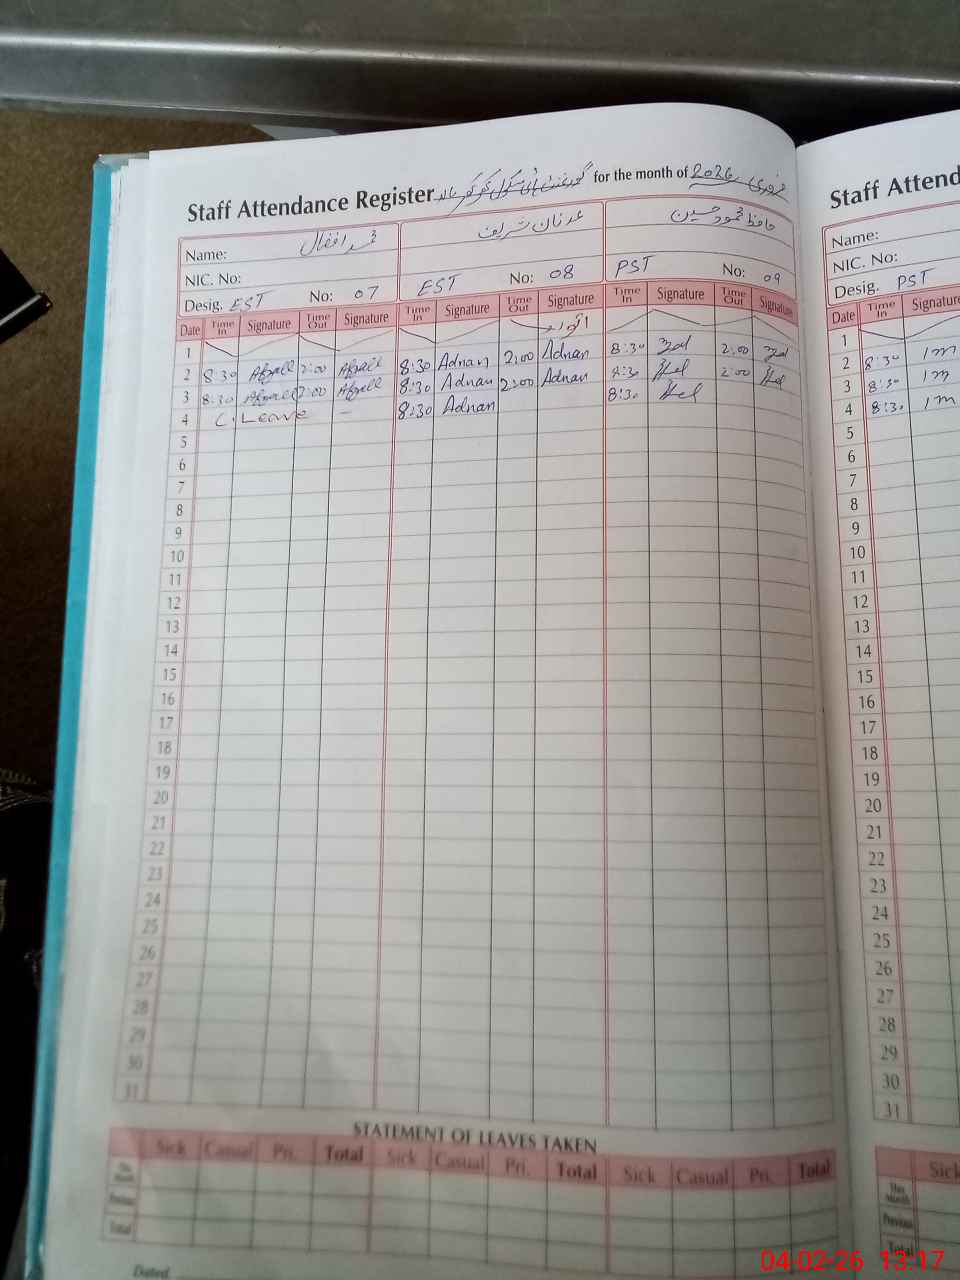 Staff Attendance Register گورنمنٹ ہائی سکول for the month of فروری 2026
Name: محمد افضال عدنان شریف حافظ محمود حسین
NIC. No:
Desig. EST No: 07 EST No: 08 PST No: 09
Date Time In Signature Time Out Signature Time In Signature Time Out Signature Time In Signature Time Out Signature
1 اتوار
2 8:30 Afzall 2:00 Afzall 8:30 Adnan 2:00 Adnan 8:30 2:00
3 8:30 Afzall 2:00 Afzall 8:30 Adnan 2:00 Adnan 8:30 2:00
4 C. Leave — 8:30 Adnan 8:30
5
6
7
8
9
10
11
12
13
14
15
16
17
18
19
20
21
22
23
24
25
26
27
28
29
30
31
STATEMENT OF LEAVES TAKEN
Sick Casual Pri. Total Sick Casual Pri. Total Sick Casual Pri. Total
This Month
Previous
Total
Dated
Staff Attend
Name:
NIC. No:
Desig. PST
Date Time In Signature
1
2 8:30 1m
3 8:30 1m
4 8:30 1m
5
6
7
8
9
10
11
12
13
14
15
16
17
18
19
20
21
22
23
24
25
26
27
28
29
30
31
Sick
This Month
Previous
Total
04-02-26 13:17